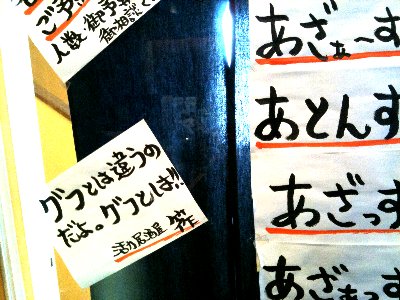 ご予
人数・御予
御相談く
グフとは違うの
だよ。グフとは!!
活力居酒屋
あざぁ〜す
あとんす
あざっす
あざぁっす